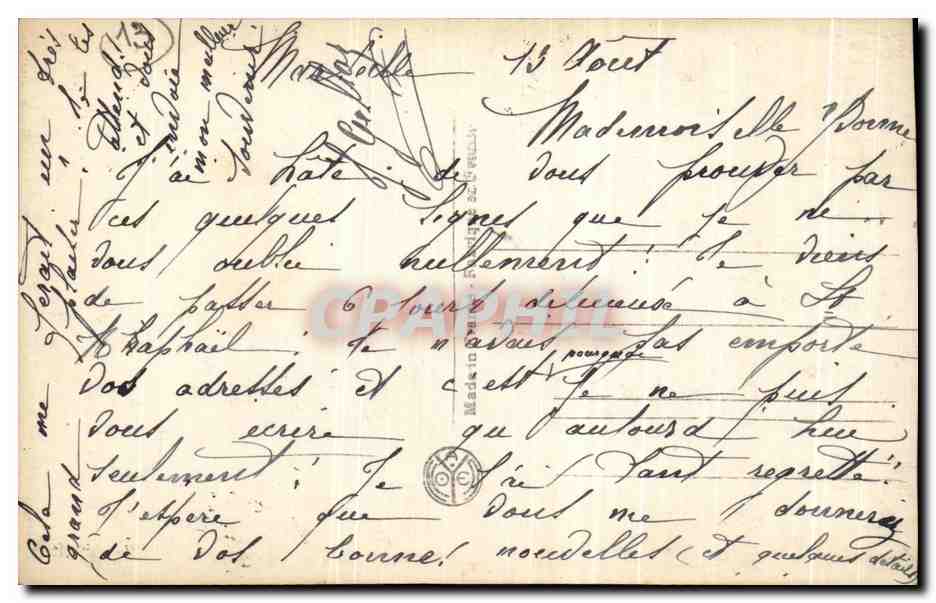 Marseille 13 Août
Mademoiselle Yvonne
J'ai hâte de vous prouver par
ces quelques lignes que je ne
vous oublie nullement ! Je viens
de passer 6 jours dilivisée à St
Raphaël ! Je n'avais pas emporté
vos adresses et c'est pourquoi je ne puis
vous écrire qu'aujourd'hui
seulement ! Je l'ai tant regretté !
J'espère que vous me donnerez
de vos bonnes nouvelles (et quelques détails)
Cela me serait un très
grand plaisir !
attend !
et vous
envoie
mon meilleur
souvenir
Made in France - Fabriqué en France
CPAPHIL